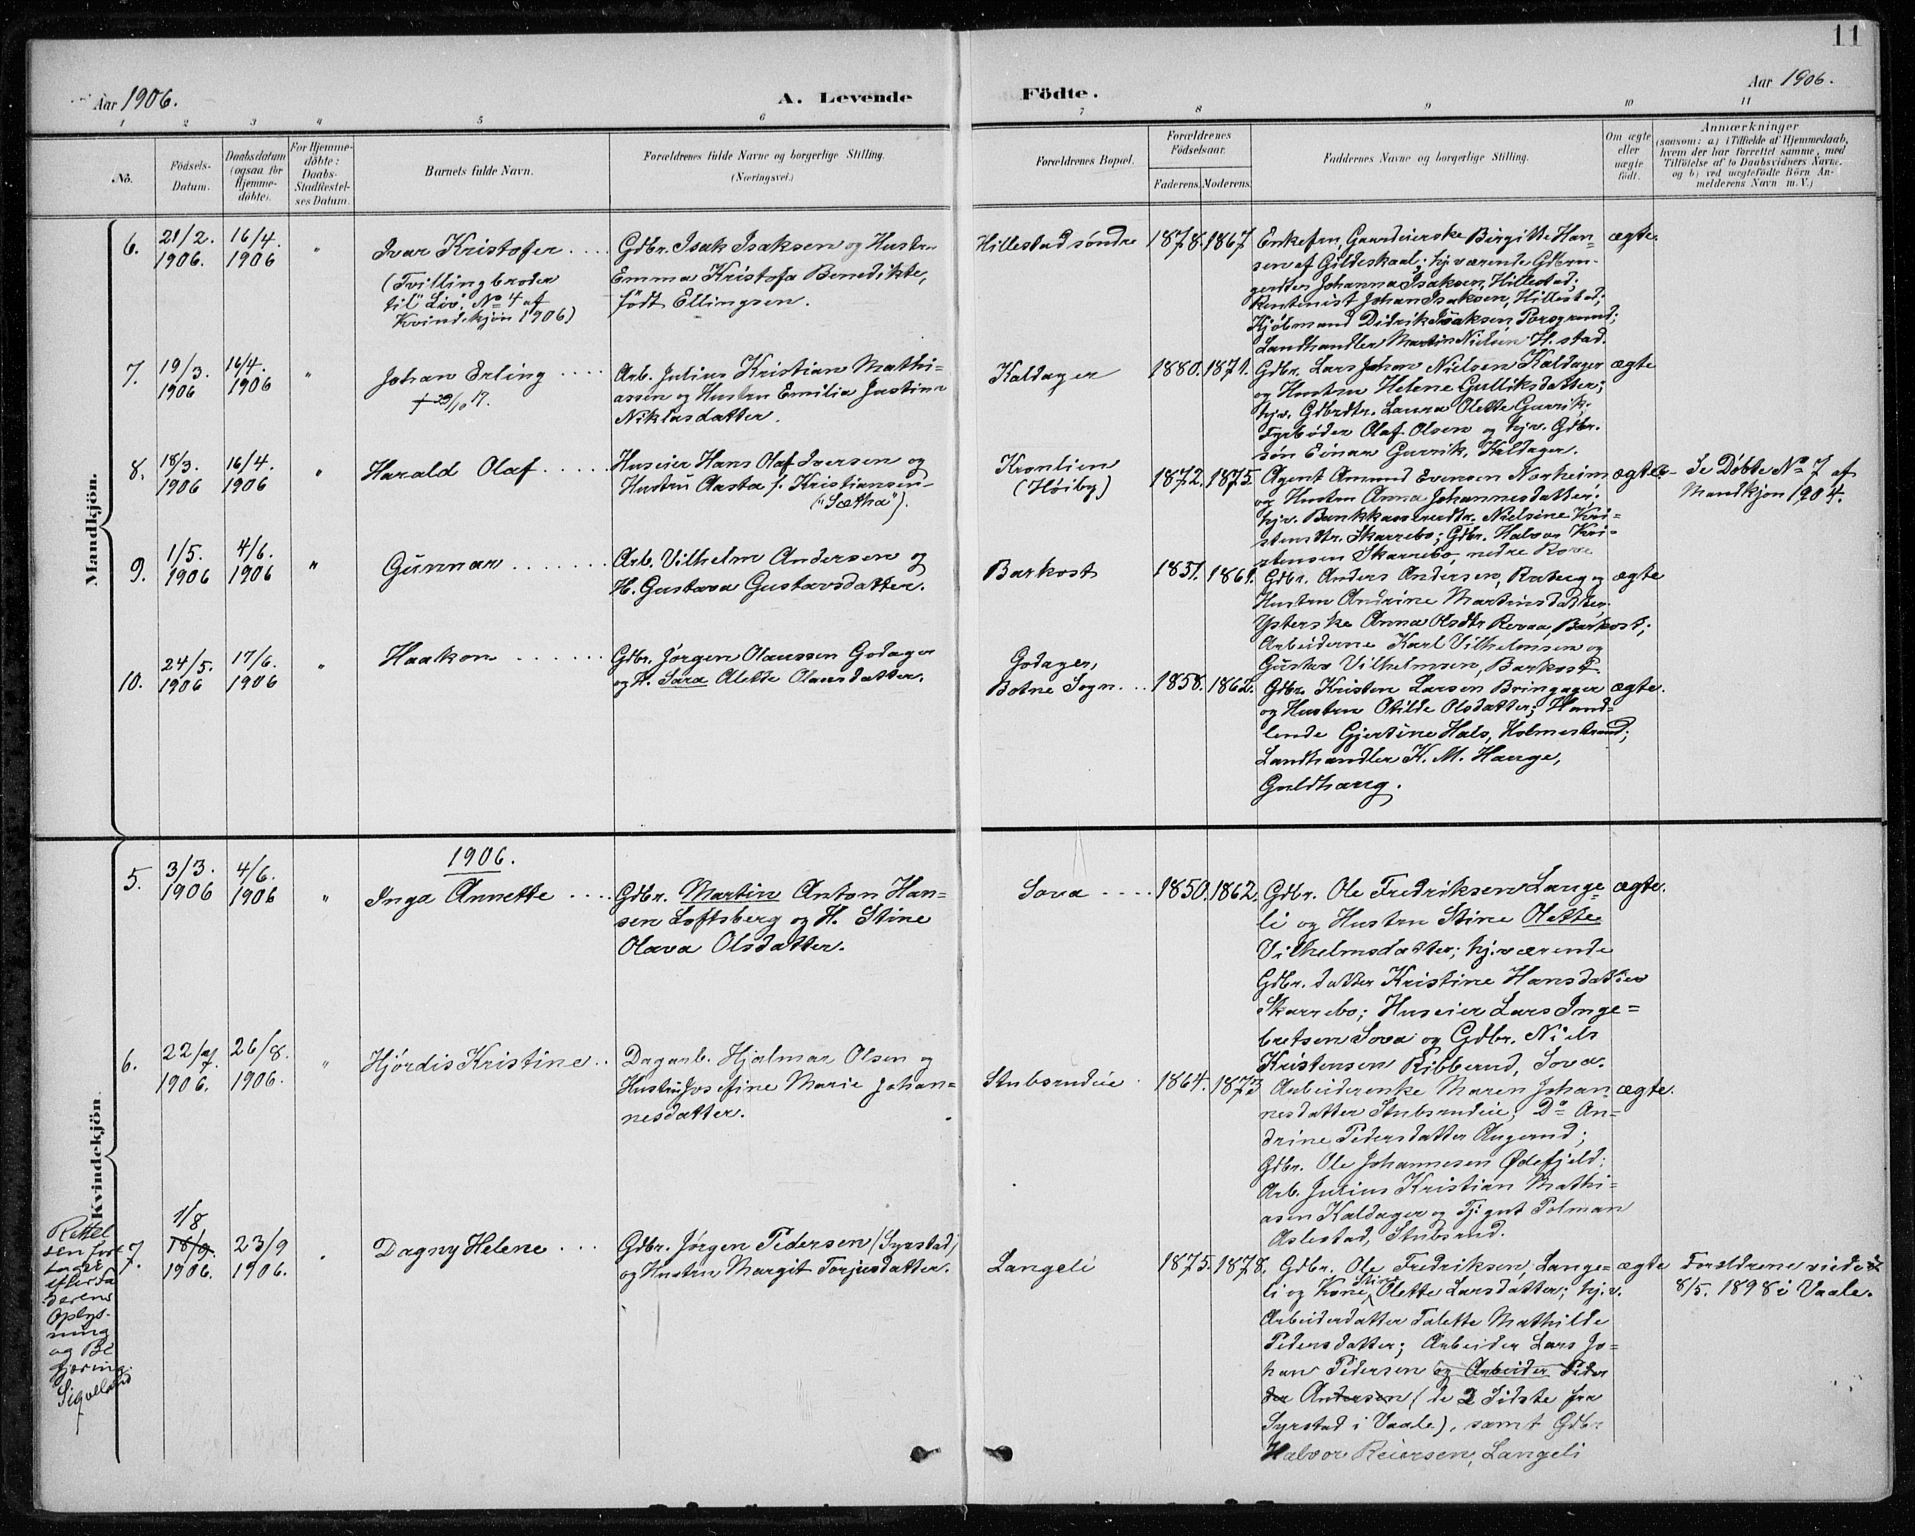 11
Aar 1906.
A. Levende Födte.
Aar 1906.
1 2 3 4 5 6 7 8 9 10 11
No.
Födsels-
Datum.
Daabsdatum
(ogsaa for
Hjemme-
döbte).
For Hjemme-
döbte:
Daabs-
Stadfæstel-
ses Datum.
Barnets fulde Navn.
Forældrenes fulde Navne og borgerlige Stilling.
(Næringsvei.)
Forældrenes Bopæl.
Forældrenes
Födselsaar.
Faderens. Moderens.
Faddernes Navne og borgerlige Stilling.
Om ægte
eller
uægte
födt.
Anmærkninger
(saasom: a) i Tilfælde af Hjemmedaab,
hvem der har forrettet samme, med
Tilföielse af to Daabsvidners Navne,
og b) ved uægtefödte Börn An-
melderens Navn m. V.)
Mandkjön.
6.
21/2.
1906.
16/4.
1906
"
Ivar Kristofer ....
(Tvillingbroder
til "Liv", No 4 af
Kvindekjøn 1906)
Gdbr. Isak Isaksen og Hustru
Emma Kristofa Benedikte,
født Ellingsen.
Hillestad søndre
1878. 1867.
Enkefru, Gaardeierske Birgitte Han-
sen af Gildeskaal; hjværende Gdbru-
gerdtr Johanna Isaksen, Hillestad;
Rentenist Johan Isaksen, Hillestad;
Kjøbmand Didrik Isaksen, Porsgrund;
Landhandler Martin Nielsen H.stad.
ægte.
7.
19/3.
1906
16/4.
1906
"
Johan Erling ....
+ 29/10 17.
Arb. Julius Kristian Mathi-
assen og Hustru Emilia Justine
Niklasdatter.
Kaldager
1880. 1871.
Gdbr. Lars Johan Nielsen Kaldager
og Hustru Helene Gulliksdatter;
hjv. Gdbrdtr. Laura Olette Gurrik;
Fyrbøder Olaf Olsen og hjv. Gdbr.
søn Einar Gurrik, Kaldager.
ægte
8.
18/3.
1906
16/4.
1906
"
Harald Olaf .....
Huseier Hans Olaf Iversen og
Hustru Aasta f. Kristiansen
("Sætha").
Kronlien
(Høiby)
1872. 1875.
Agent Amund Evensen Norheim
og Hustru Anna Johannesdatter;
hjv. Bankkassererdtr. Nielsine Kri-
stensdtr. Skarrebo; Gdbr. Halvor Kri-
stensen Skarrebo, nedre Rove
ægte
Se Døbte No 7 af
Mandkjøn 1904.
9.
1/5.
1906
4/6.
1906
"
Gunnar .......
Arb. Vilhelm Andersen og
H. Gustava Gustavsdatter.
Barkost
1851. 1861.
Gdbr. Anders Andersen, Raaberg og
Hustru Andrine Martinsdatter;
Ysterske Anna Olsdtr Revaa, Barkost;
Arbeiderne Karl Vilhelmsen og
Gustav Vilhelmsen, Barkost.
ægte
10.
24/5.
1906
17/6.
1906
"
Haakon ......
Gdbr. Jørgen Olaussen Godager
og H. Sara Alette Olausdatter.
Godager,
Botne Sogn...
1858. 1862.
Gdbr. Kristen Larsen Bringager
og Hustru Otilde Olsdatter; Hand-
lende Gjertine Hals, Holmestrand;
Landhandler K. M. Hauge,
Guldhaug.
ægte.
Kvindekjön.
1906.
5.
3/3.
1906
4/6.
1906
"
Inga Annette ....
Gdbr. Martin Anton Han-
sen Loftsberg og H. Stine
Olava Olsdatter.
Sova ....
1850. 1862.
Gdbr. Ole Fredriksen Lange-
li og Hustru Stine Olette
Vilhelmsdatter; hj.værende
Gdbr. datter Kristine Hansdatter
Skarrebo; Huseier Lars Inge-
bretsen Sova og Gdbr. Niels
Kristensen Ribberud, Sova.
ægte.
6.
22/7
1906.
26/8.
1906.
"
Hjørdis Kristine..
Dagarb. Hjalmar Olsen og
Hustru Josefine Marie Johan-
nesdatter.
Stubsrudeie
1864. 1873
Arbeiderenke Maren Johan-
nesdatter Stubsrudeie; Do An-
drine Pedersdatter Augerud;
Gdbr. Ole Johannesen Ødefjeld;
Arb. Julius Kristian Mathi-
asen Kaldager og Tj. gut Tolman
Aslestad, Stubsrud.
ægte.
7.
1/8
18/9.
1906.
23/9
1906.
Dagny Helene ...
Gdbr. Jørgen Pedersen (Syrstad)
og Hustru Margit Torjusdatter.
Langeli
1875. 1878.
Gdbr. Ole Fredriksen, Lange-
li og Kone Stine Olette Larsdatter; hj.v.
Arbeiderdatter Talette Mathilde
Pedersdatter; Arbeider Lars Jo-
han Pedersen og Arbeider Peder
Andersen (de 2 Sidste fra
Syrstad i Vaale), samt Gdbr.
Halvor Reiersen, Langeli
ægte
Forældrene viede
8/5. 1898 i Vaale.
Rettel
sen fore
taget
efter Fa
derens
Oplys-
ning
og Be
gjæring.